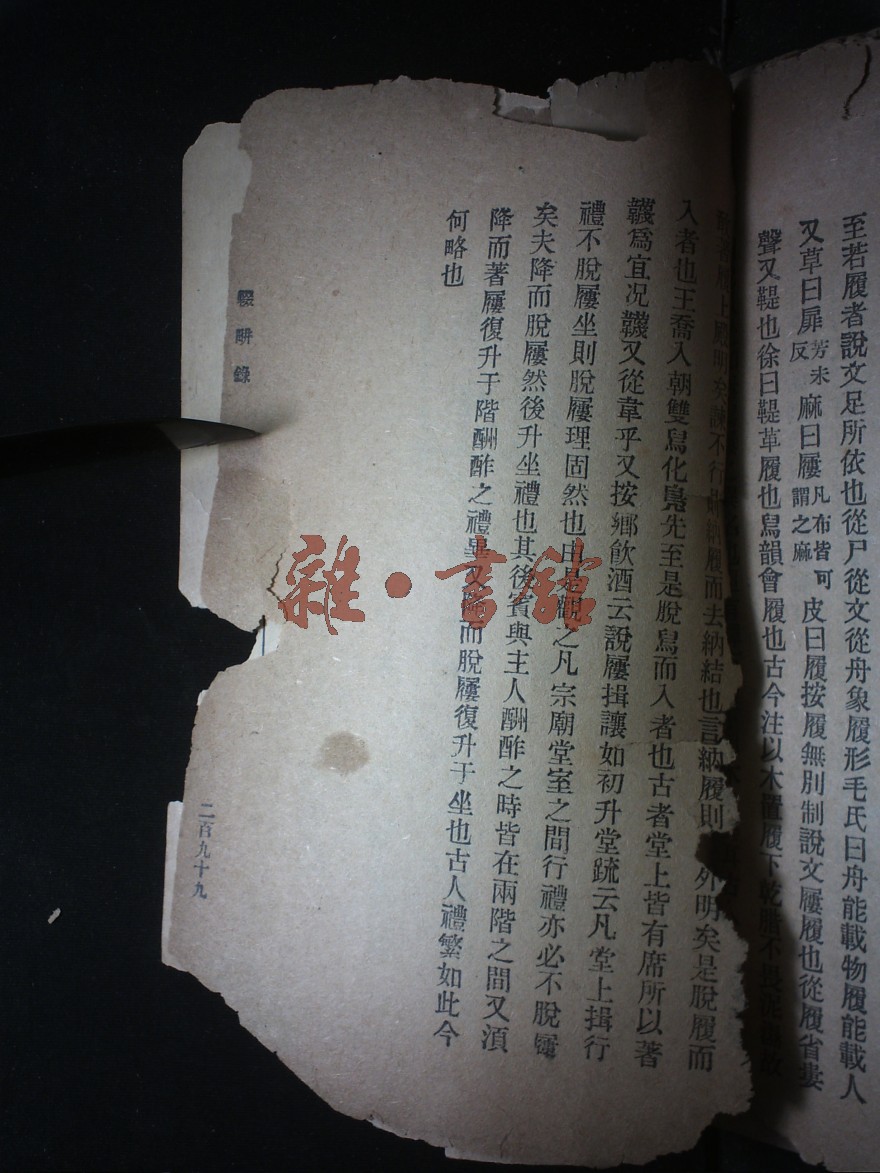 至若履者說文足所依也從尸從文從舟象履形毛氏曰舟能載物履能載人
又草曰屝芳未反麻曰屨凡布皆可謂之麻皮曰履按履無別制說文屨履也從履省婁
聲又鞮也徐曰鞮革履也舄韻會履也古今注以木置履下乾腊不畏泥
上殿明矣諫不行則納履而去納結也言納履則外明矣是脫履而
入者也王喬入朝雙舄化鳧先至是脫舄而入者也古者堂上皆有席所以著
韈爲宜况韈又從韋乎又按鄉飮酒云說屨揖讓如初升堂疏云凡堂上揖行
禮不脫屨坐則脫屨理固然也由是觀之凡宗廟堂室之間行禮亦必不脫屨
矣夫降而脫屨然後升坐禮也其後賓與主人酬酢之時皆在兩階之間又湏
降而著屨復升于階酬酢之禮畢又降而脫屨復升于坐也古人禮繁如此今
何略也
輟畊錄
二百九十九
雜·書館